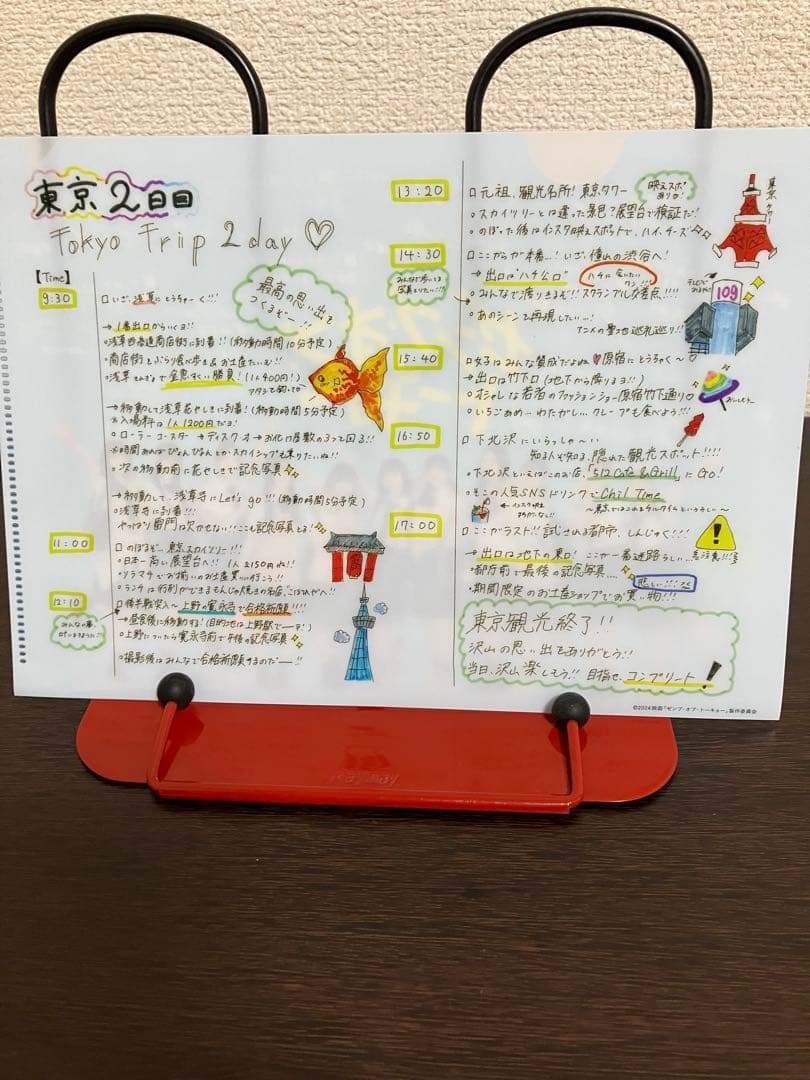 東京2日目
Tokyo Triip 2day ♡
【Time】
9:30
□いざ、浅草にとうちゃーく!!!
最高の思い出を
つくるぞー!!
→1番出口からいくヨ!!
○浅草西参道商店街に到着!! (移動時間10分予定)
○商店街をぶらり食べ歩き&お土産たいむ!!
○浅草きんぎょで金魚すくい勝負! (1人400円!)
→移動して浅草花やしきに到着! (移動時間5分予定)
※入場料は1人1200円だヨ!
○ローラーコースター→ディスク・オー→お化け屋敷の3つで回る!!
※時間あればぴょんぴょんとかスカイシップも乗りたいね!!
○次の移動前に花やしきで記念写真
→移動して、浅草寺にLet's go!!! (移動時間5分予定)
○浅草寺に到着!!!
やっぱり雷門は欠かせない!!ここも記念写真とる!
11:00
□のぼるぞー、東京スカイツリー!!!
○日本一高い展望台へ!! 1人2150円ね!!
○ソラマチでお揃いのお土産買い行こう!!
○ランチは行列ができるもんじゃ焼きのお店、こぼれやへ!!
12:10
□後半戦突入〜上野の寛永寺で合格祈願!!!!
→昼食後に移動する! (目的地は上野駅でーす!)
○上野についたら寛永寺前で午後の記念写真
○撮影後はみんなで合格祈願するのだーー!!
13:20
□元祖、観光名所!東京タワー
映えスポ
ありり!
東京タワー
○スカイツリーとは違った景色?展望台で検証だ!
○のぼった後はインスタ映えスポットで、ハイ、チーズ
14:30
□ここからが本番…!いざ、憧れの渋谷へ!
→出口は"ハチ公口"
ハチに会いたい
ワン!!
○みんなで渡りきるぞ!!スクランブル交差点!!!!
109
○あのシーンを再現したい…!
アニメの聖地巡礼巡り!!
15:40
□女子はみんな賛成だよね♡原宿にとうちゃく〜
→出口は竹下口 (地下から降りるヨ!!)
○オシャレな若者のファッションショー原宿竹下通り♡
○いちごあめ…わたがし…クレープも食べよう!!!
16:50
□下北沢にいらっしゃ〜い
知る人ぞ知る、隠れた観光スポット!!!!
○下北沢といえばこのお店、「512 Cafe & Grill」にGo!
○そこの人気SNSドリンクでChil Time
〜東京ではこれをチルタイムというらしい〜
17:00
□ここがラスト!!試される都市、しんじゅく!!!
→出口は地下の東口!ここが一番迷路らしい…
○都庁前で最後の記念写真…
悲しい!!!
○期間限定のお土産ショップでお買い物!!!
東京観光終了!!
沢山の思い出をありがとう!!
当日、沢山楽しもう!!目指せ、コンプリート!
©2024 映画「ゼンブ・オブ・トーキョー」製作委員会